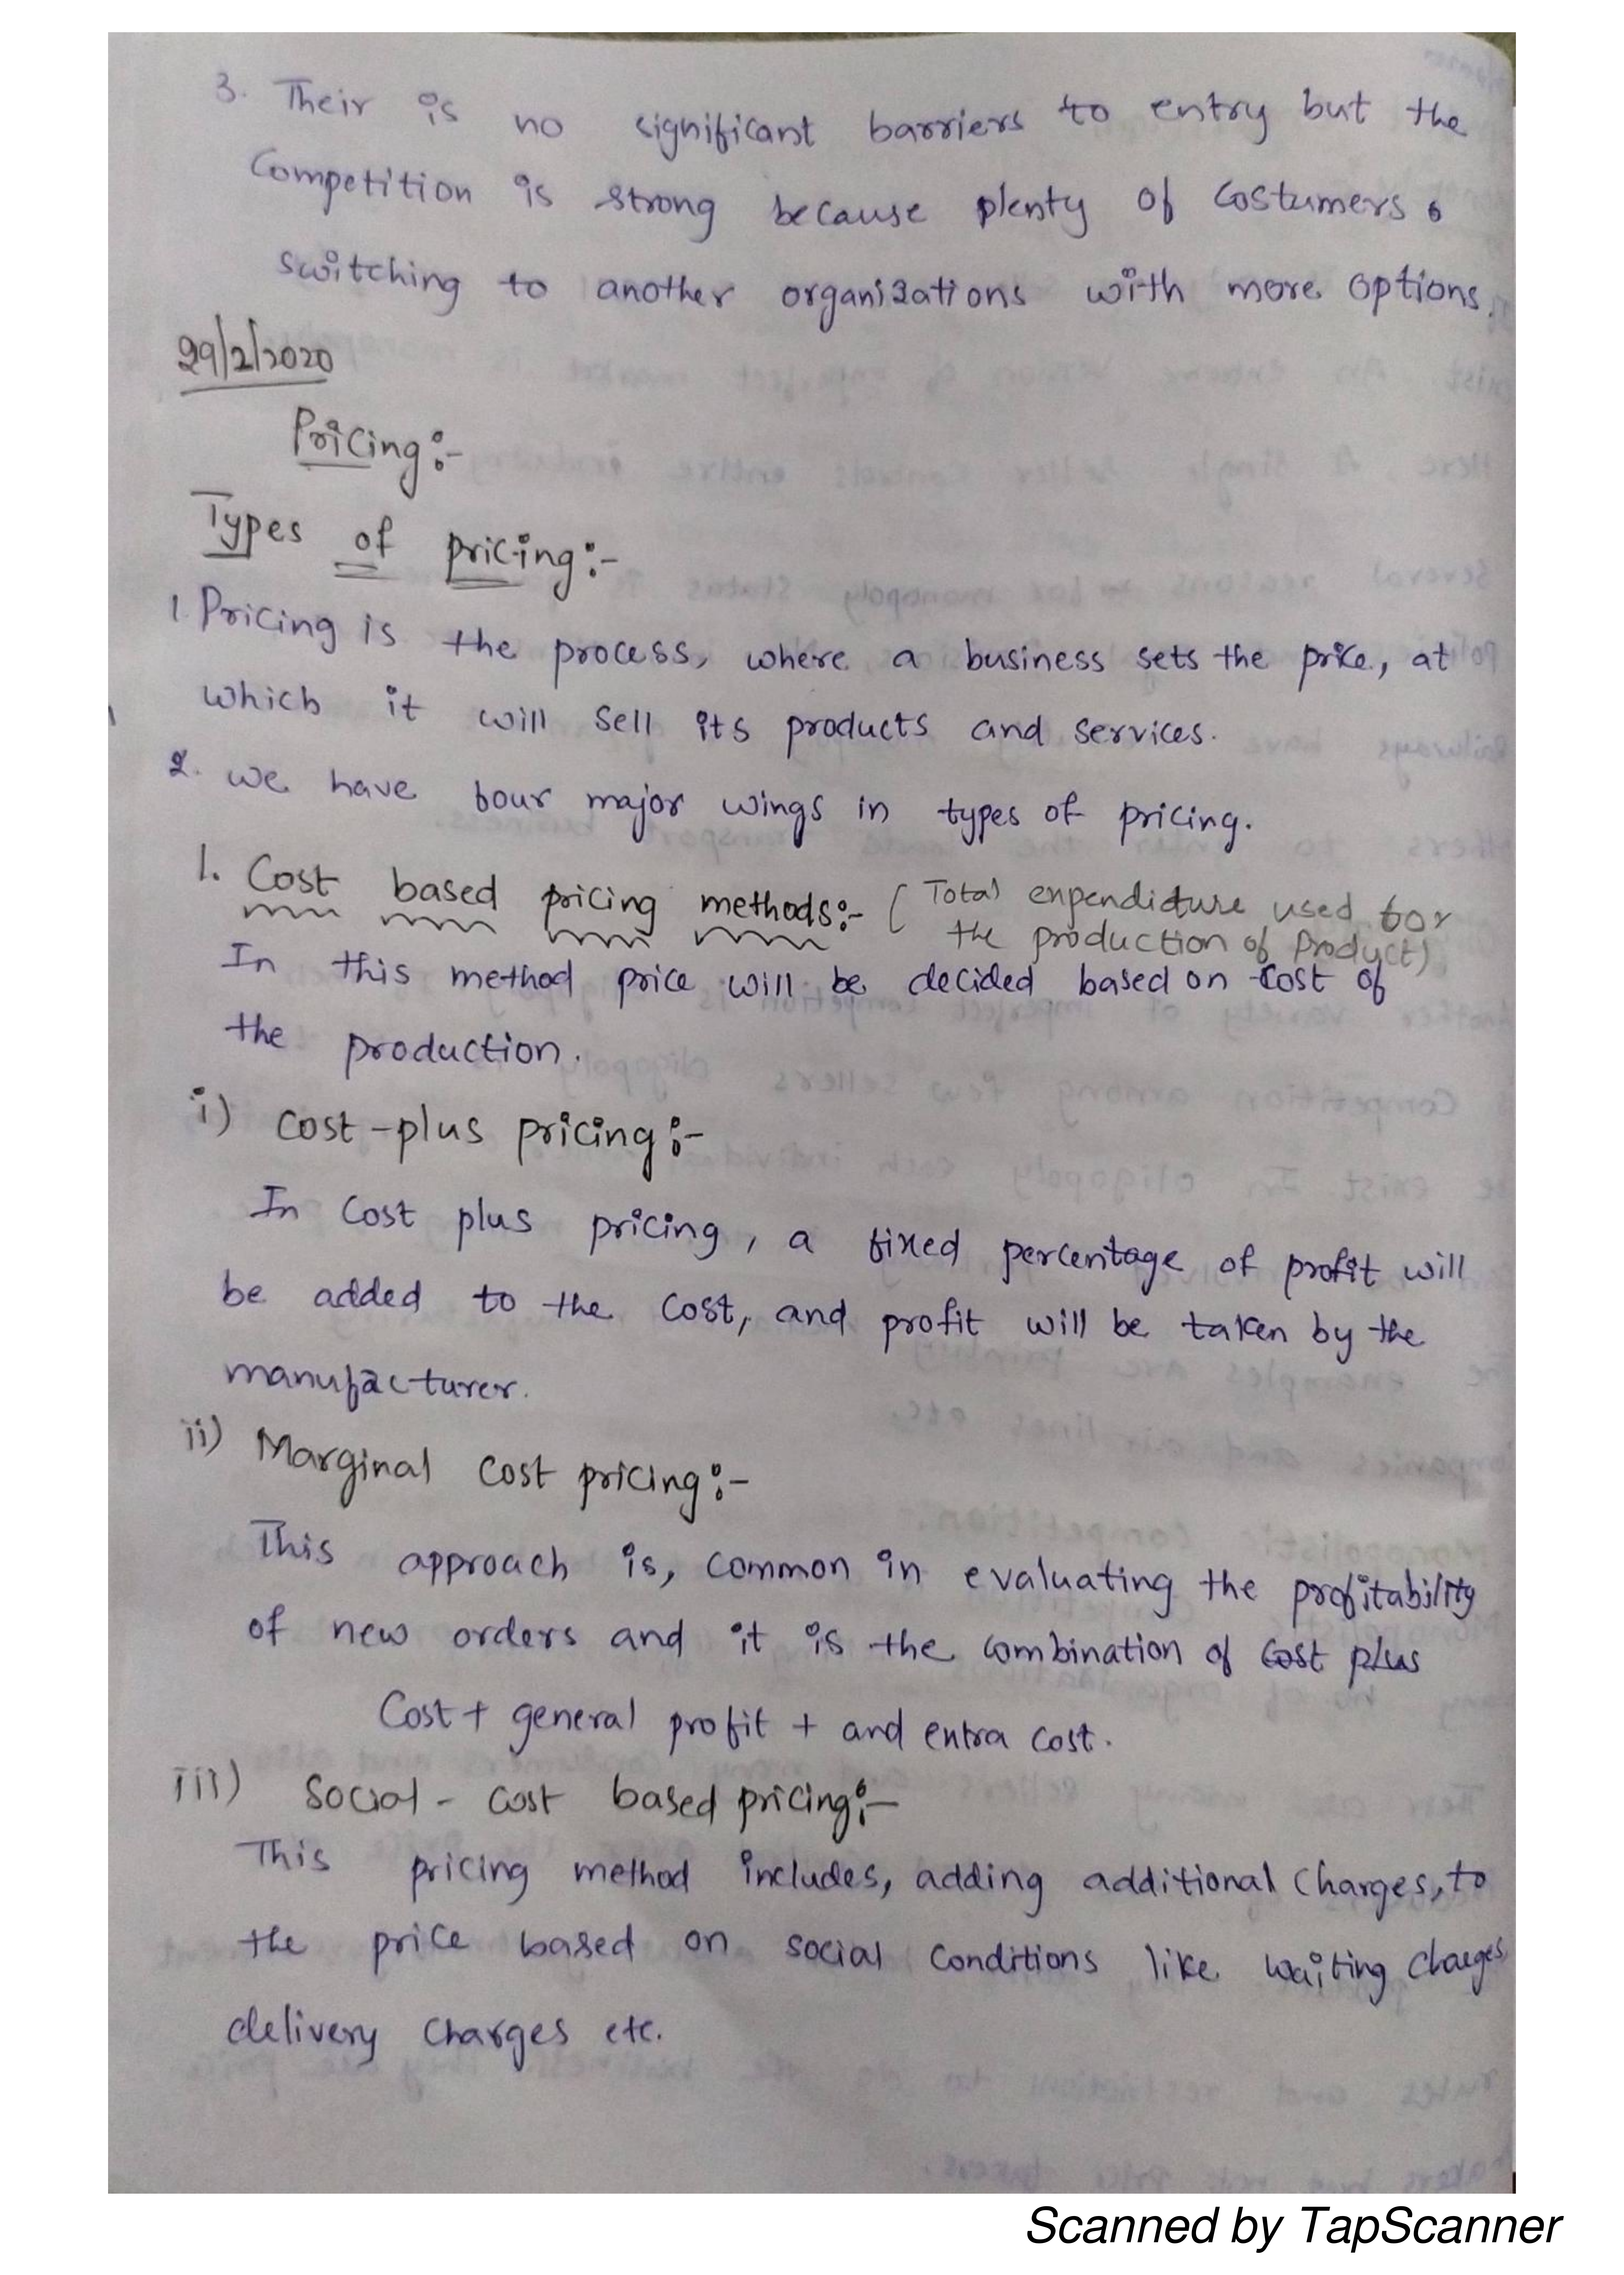 3. Their is no significant barriers to entry but the
Competition is strong because plenty of costumers
switching to another organizations with more options.
29/2/2020
Pricing:-
Types of pricing:-
1. Pricing is the process, where a business sets the price, at
which it will sell its products and services.
2. we have four major wings in types of pricing.
1. Cost based pricing methods:- ( Total expendicture used for
the production of Product)
In this method price will be decided based on cost of
the production.
i) cost-plus pricing:-
In cost plus pricing, a fixed percentage of profit will
be added to the cost, and profit will be taken by the
manufacturer.
ii) Marginal cost pricing:-
This approach is, common in evaluating the profitability
of new orders and it is the combination of cost plus
Cost + general profit + and extra cost.
iii) Social - cost based pricing:-
This pricing method includes, adding additional charges, to
the price based on social conditions like waiting charges
delivery charges etc.
Scanned by TapScanner